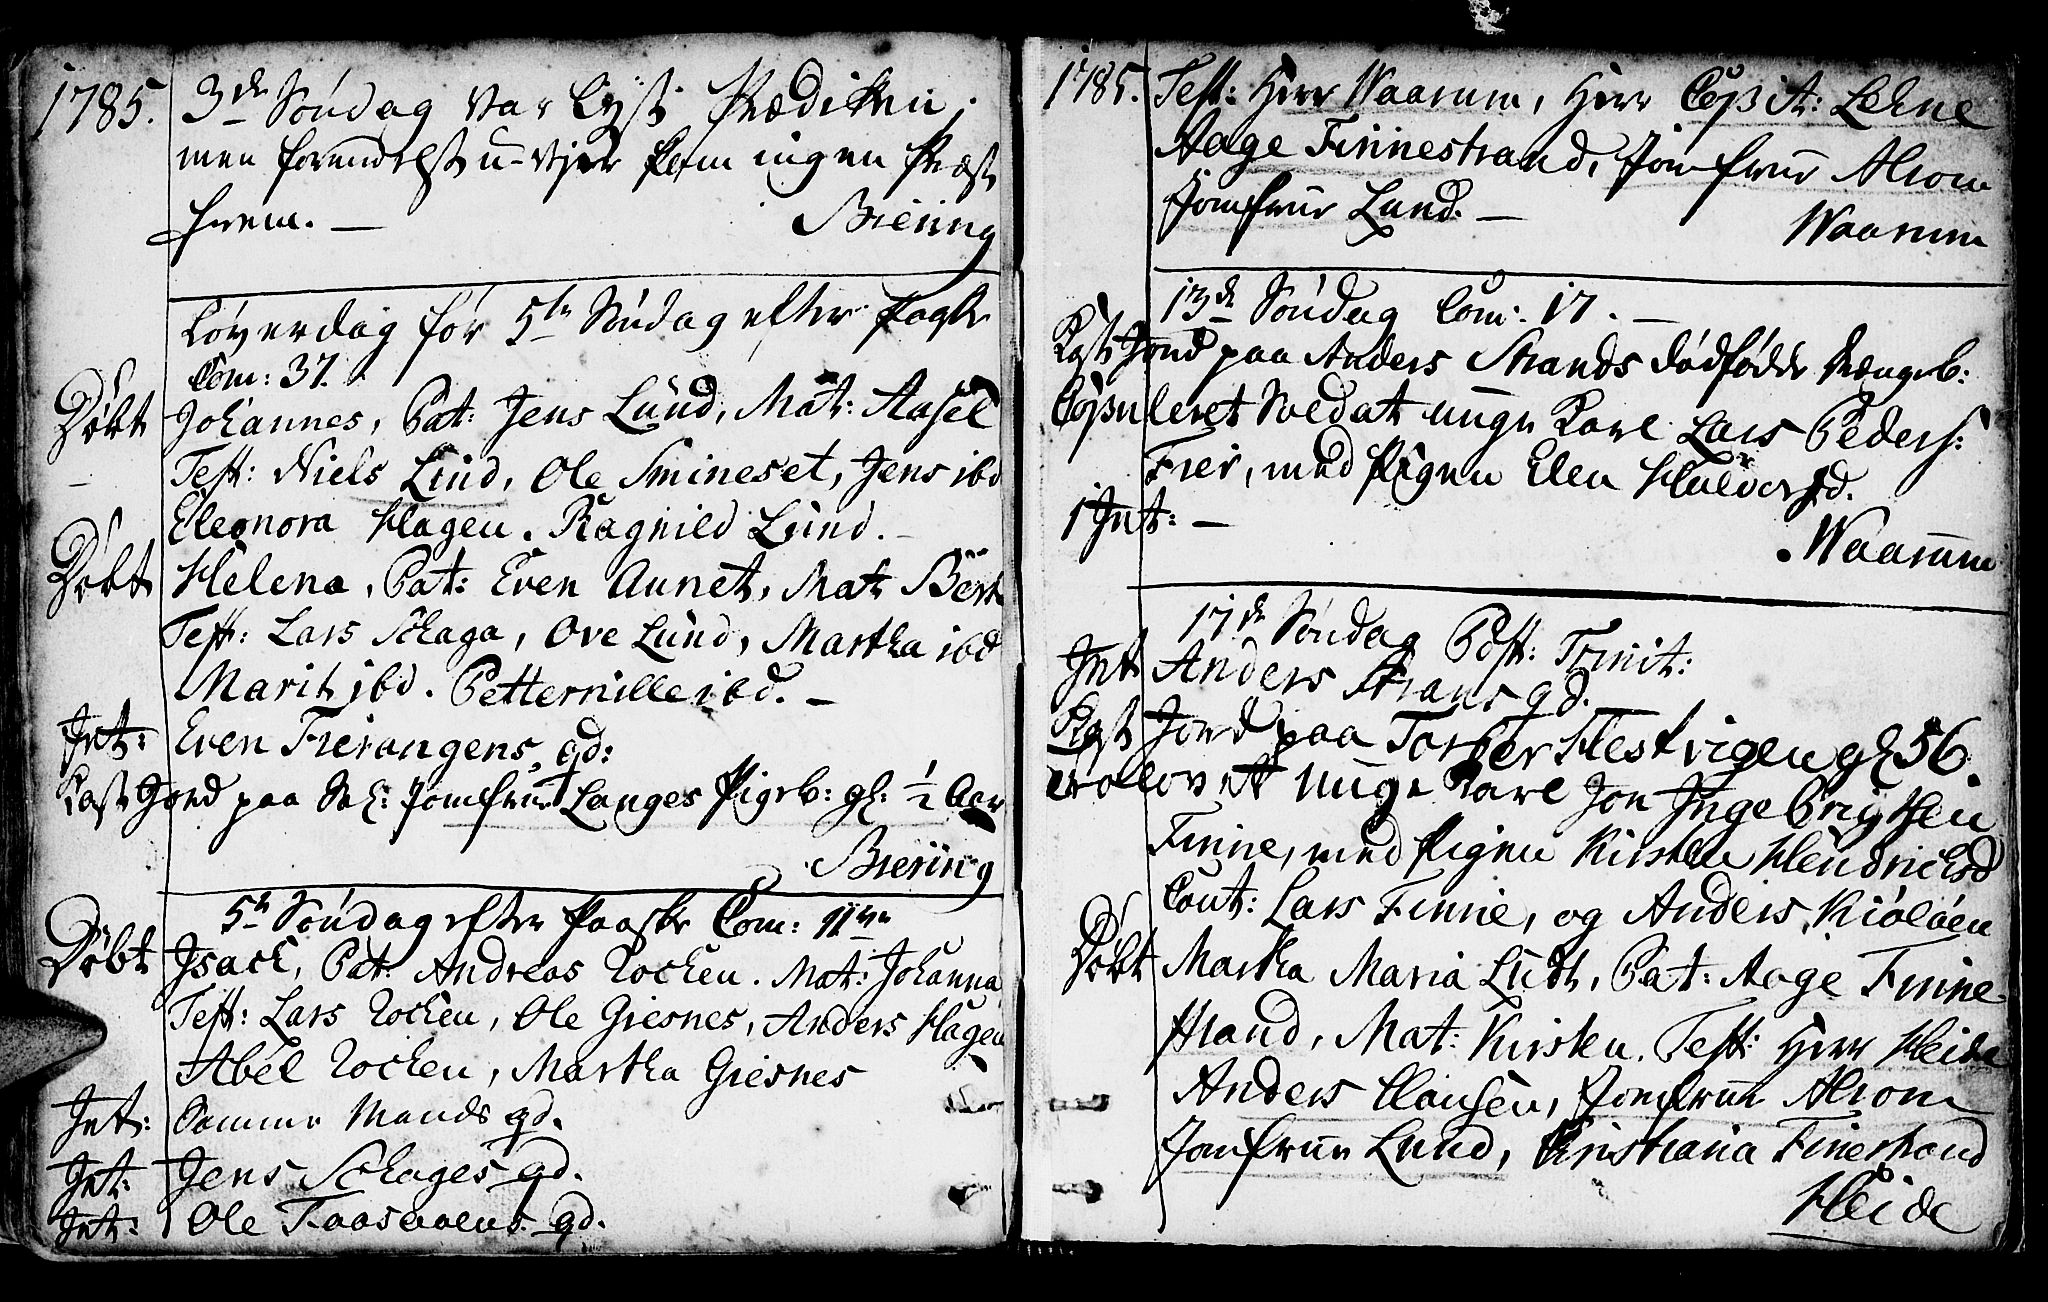 1785. 3de Søndag var lyst Prædiken;
men formedelst u-vejer kom ingen Præst
frem. — Biering
Løverdag før 5te Søndag efter Paaske
Com: 37.
Døbt Johannes, Pat: Jens Lund, Mat: Aasel
Test: Niels Lund, Ole Smineset, Jens ibd
Eleonora Hagen. Ragnild Lund. —
Døbt Helena, Pat: Even Aunet, Mat: Bert
Test: Lars Schaga, Ove Lund, Martha ibd
Marit ibd. Petternille ibd. —
Int: Even Frierangens qd:
Kast Jord paa Sal: Jomfrue Langes Pigeb: gl: ½ Aar
Biering
5te Søndag efter Paaske Com: 11ve
Døbt Isach, Pat: Andreas Rochen. Mat: Johanna
Test: Lars Rochen, Ole Giesnes, Anders Hagen
Abel Rochen, Martha Giesnes
Int: Samme Mands qd.
Int: Jens Schages qd.
Int: Ole Faasaaens qd.
1785. Test: Herr Waarum, Herr Capit: Lehne
Aage Finnestrand, Jomfrue Alrom
Jomfrue Lund. — Waarum
13de Søndag Com: 17. —
Kast Jord paa Anders Strands dødfødde Drængeb:
Copuleret Soldat unge Karl Lars Peders:
Frei, med Pigen Elen Halvorsd.
1 Int: — Waarum
17de Søndag Post: Trinit:
Int Anders Strans qd.
Kast Jord paa Torber Hestvigen gl 56.
trolovett unge Karl Jon Ingebrigtsen
Finne, med Pigen Kirsten Hendrichsd
Caut: Lars Finne, og Anders Kiøløen
Døbt Martha Maria Ludt, Pat: Aage Finne-
strand, Mat: Kirsten. Test: Herr Heide
Anders Hansen, Jomfrue Alrom
Jomfrue Lund, Christiana Finestrand
Heide